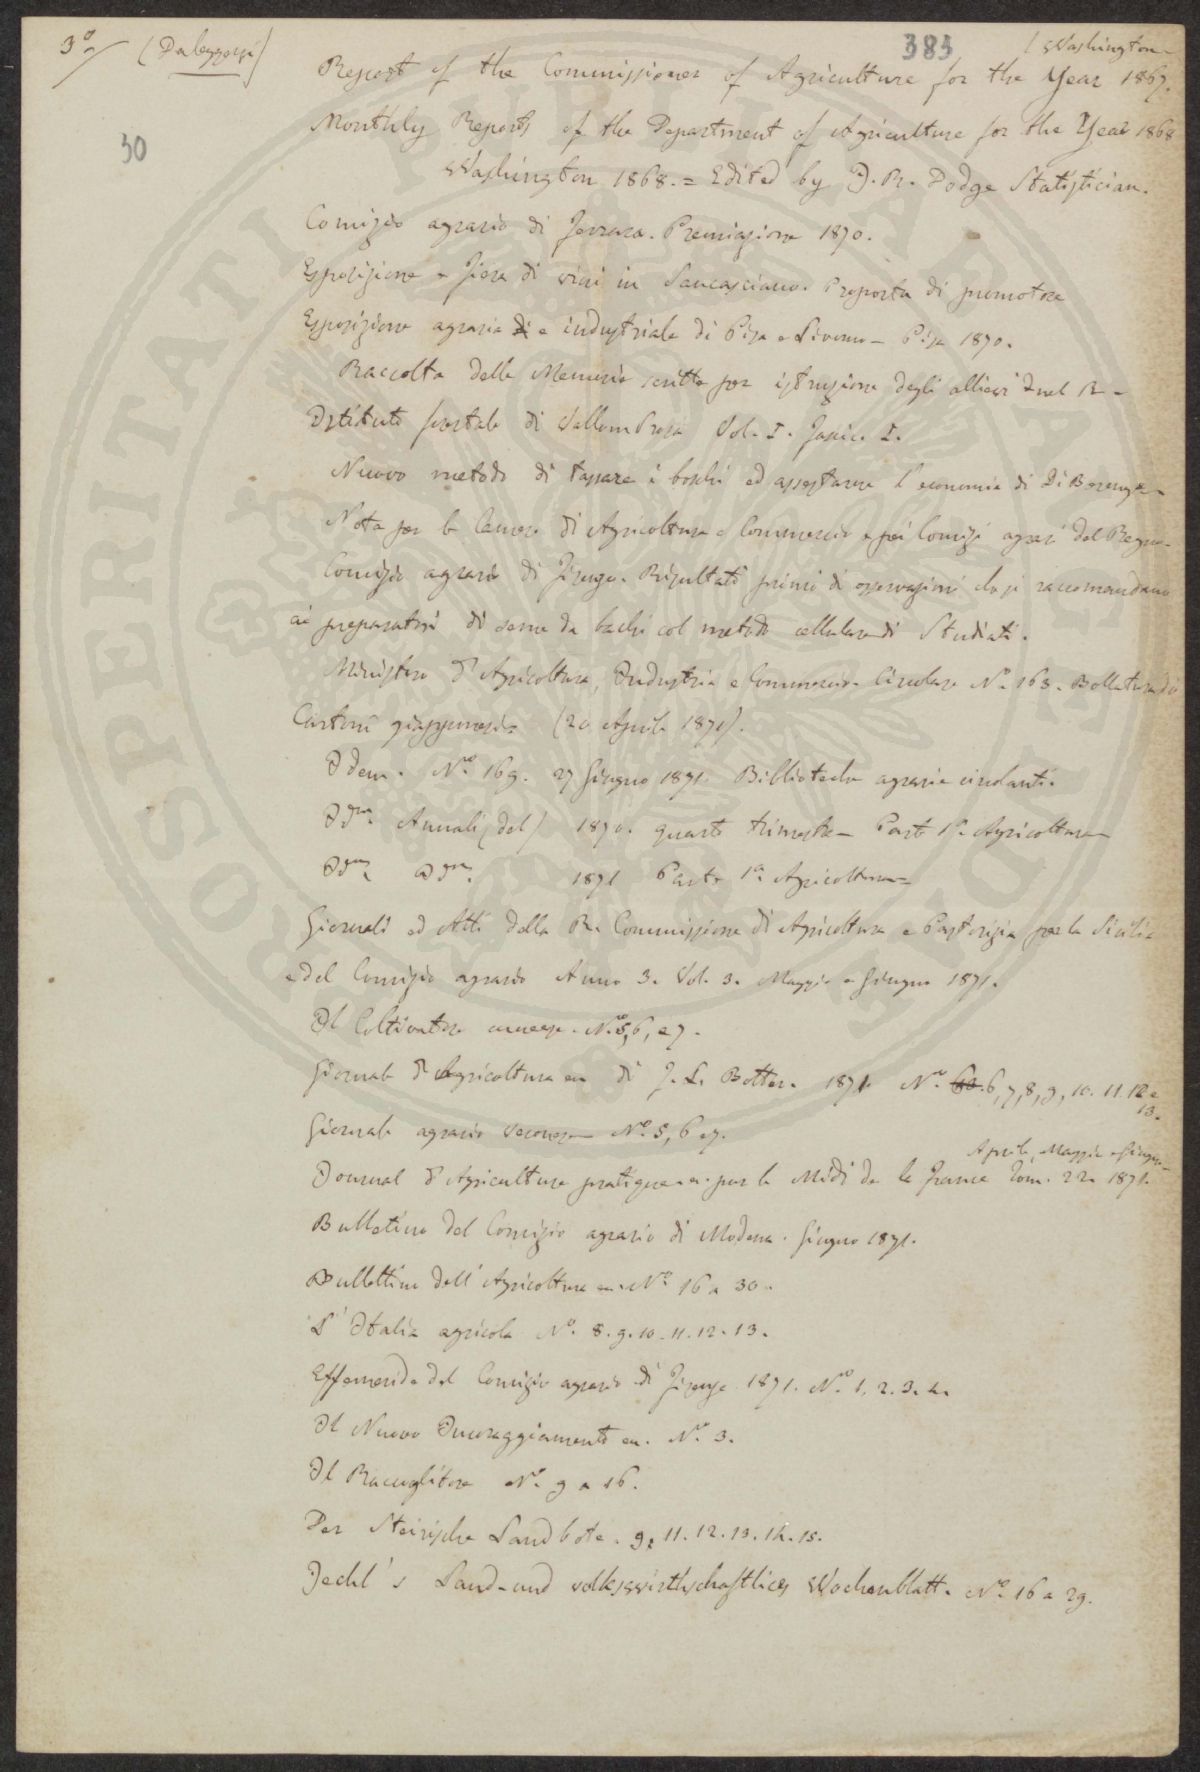 3º (Da leggersi)
383
30
(Washington
Report of the Commissioner of Agriculture for the Year 1867.
Monthly Reports of the Department of Agriculture for the Year 1868
Washington 1868. = Edited by D. R. Dodge Statistician.
Comizio agrario di Ferrara. Premiazione 1870.
Esposizione e Fiera di vini in Sancasciano. Proposta di promotore
Esposizione agraria di e industriale di Pisa e Livorno - Pisa 1870.
Raccolta delle Memorie scritte per istruzione degli allievi nel R.
Istituto forestale di Vallombrosa Vol. I. Fasic. I.
Nuovo metodo di tassare i boschi ed assestarne l'economia di Di Berenger
Nota per le Camere di Agricoltura e Commercio e pei Comizi agrari del Regno
Comizio agrario di Firenze. Risultati primi di osservazioni che si raccomandano
ai preparatori di seme da bachi col metodo cellulare di Studiati.
Ministero d'Agricoltura, Industria e Commercio. Circolare Nº 163. Bollatura di
Cartoni giapponesi (20 Aprile 1871).
Idem. Nº 169. 27 Giugno 1871. Biblioteche agrarie circolanti.
Idm. Annali (del) 1870. quarto trimestre - Parte 1ª Agricoltura
Idm. Idm. 1871 Parte 1ª Agricoltura
Giornali ed Atti della R. Commissione di Agricoltura e Pastorizia per la Sicilia
e del Comizio agrario Anno 3. Vol. 3. Maggio e Giugno 1871.
Il Coltivatore Nº 5, 6, e 7.
Giornale d'Agricoltura di F. L. Botter. 1871. Nº 6, 7, 8, 9, 10. 11. 12 e
13.
Giornale agrario Veronese Nº 5, 6 e 7.
Aprile, Maggio e Giugno
Journal d'Agriculture pratique pour le Midi de la France Tom. 22. 1871.
Bullettino del Comizio agrario di Modena. Giugno 1871.
Bullettino dell'Agricoltura Nº 16 a 30.
L'Italia agricola Nº 8. 9. 10. 11. 12. 13.
Effemeride del Comizio agrario di Firenze 1871. Nº 1. 2. 3. 4.
Il Nuovo Incoraggiamento Nº 3.
Il Raccoglitore Nº 9 a 16.
Der Steirische Landbote. 9, 11. 12. 13. 14. 15.
Land- und volkswirthschaftliches Wochenblatt. Nº 16 a 29.
PROSPERITATI PUBLICAE